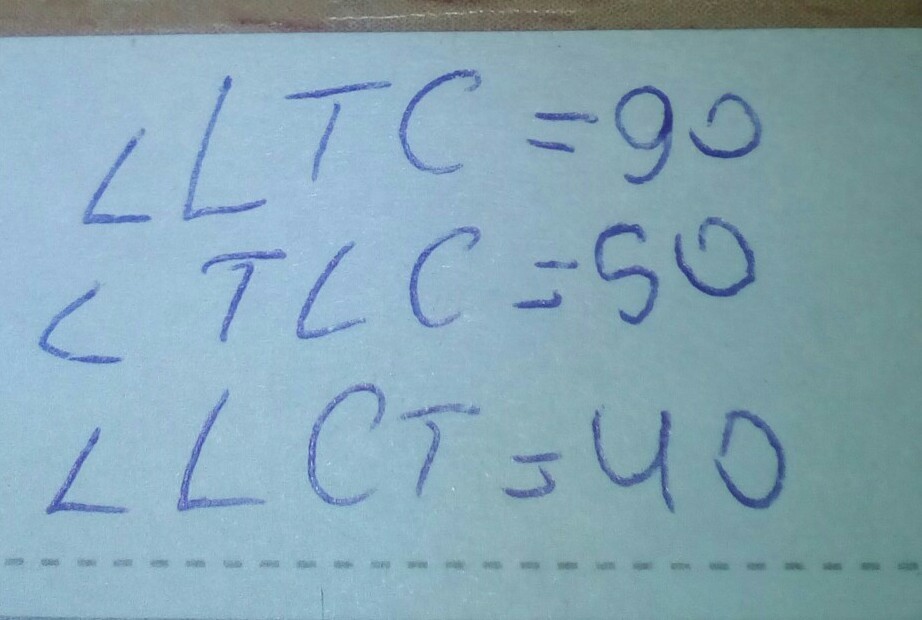 ∠LTC = 90
∠TLC = 50
∠LCT = 40